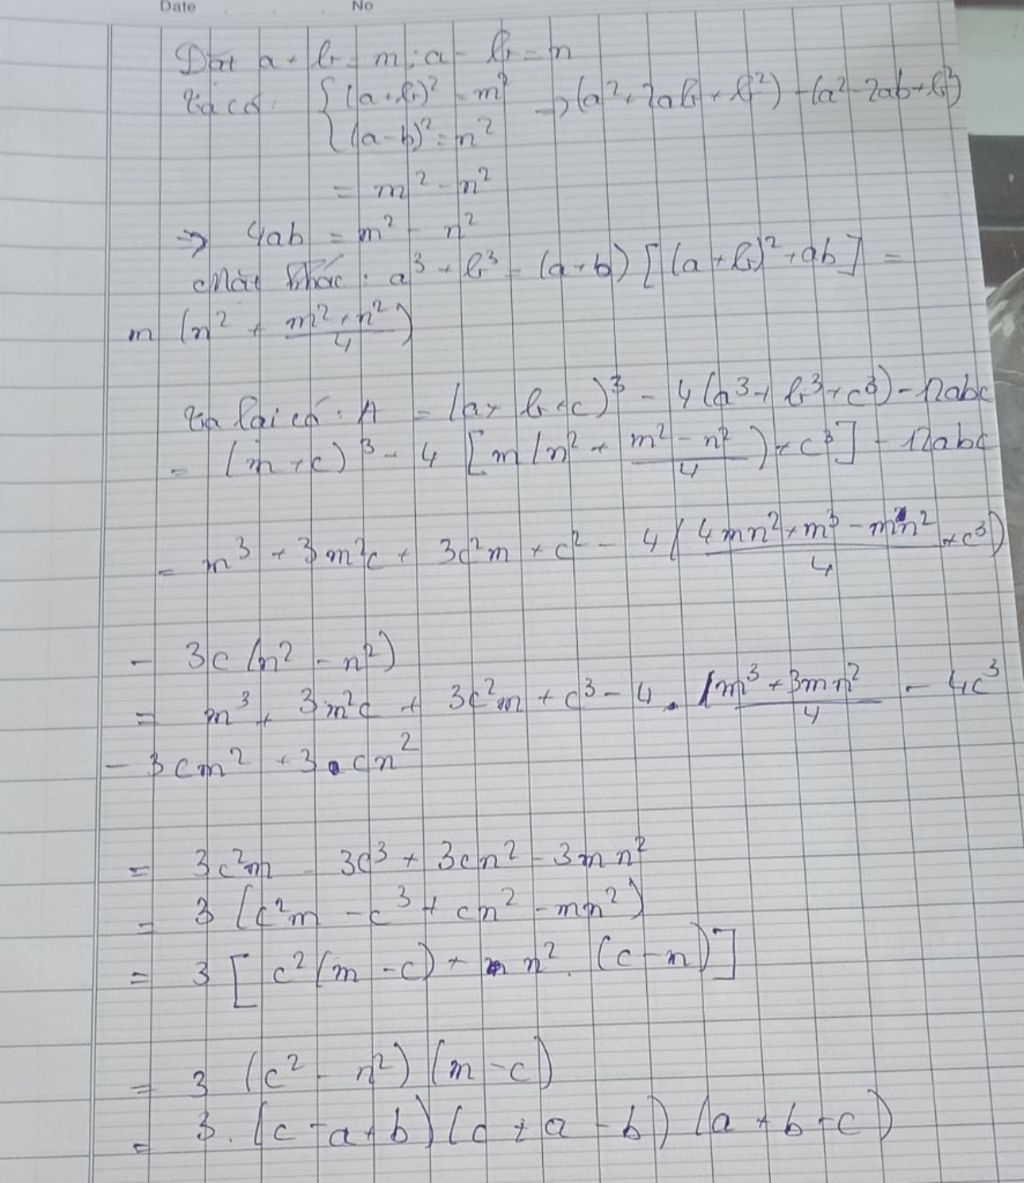 Date No
Đặt a + b = m ; a - b = n
Ta có: { (a+b)² = m² → (a² + 2ab + b²) - (a² - 2ab + b²)
{ (a-b)² = n²
= m² - n²
⇒ 4ab = m² - n²
Mặt khác : a³ + b³ = (a+b) [(a+b)² + ab] =
m (n² + (m² + n²)/4)
Ta lại có : A = (a + b + c)³ - 4(a³ + b³ + c³) - 12abc
= (m + c)³ - 4 [m(n² + (m² - n²)/4) + c³] - 12abc
= m³ + 3m²c + 3c²m + c² - 4((4mn² + m³ - mn²)/4 + c³)
- 3c (n² - n²)
= m³ + 3m²c + 3c²m + c³ - 4 . (m³ + 3mn²)/4 - 4c³
- 3cm² + 3cn²
= 3c²m - 3c³ + 3cn² - 3mn²
= 3 (c²m - c³ + cn² - mn²)
= 3 [c²(m - c) + n² . (c - m)]
= 3 (c² - n²) (m - c)
= 3. (c - a + b) (c + a - b) (a + b - c)